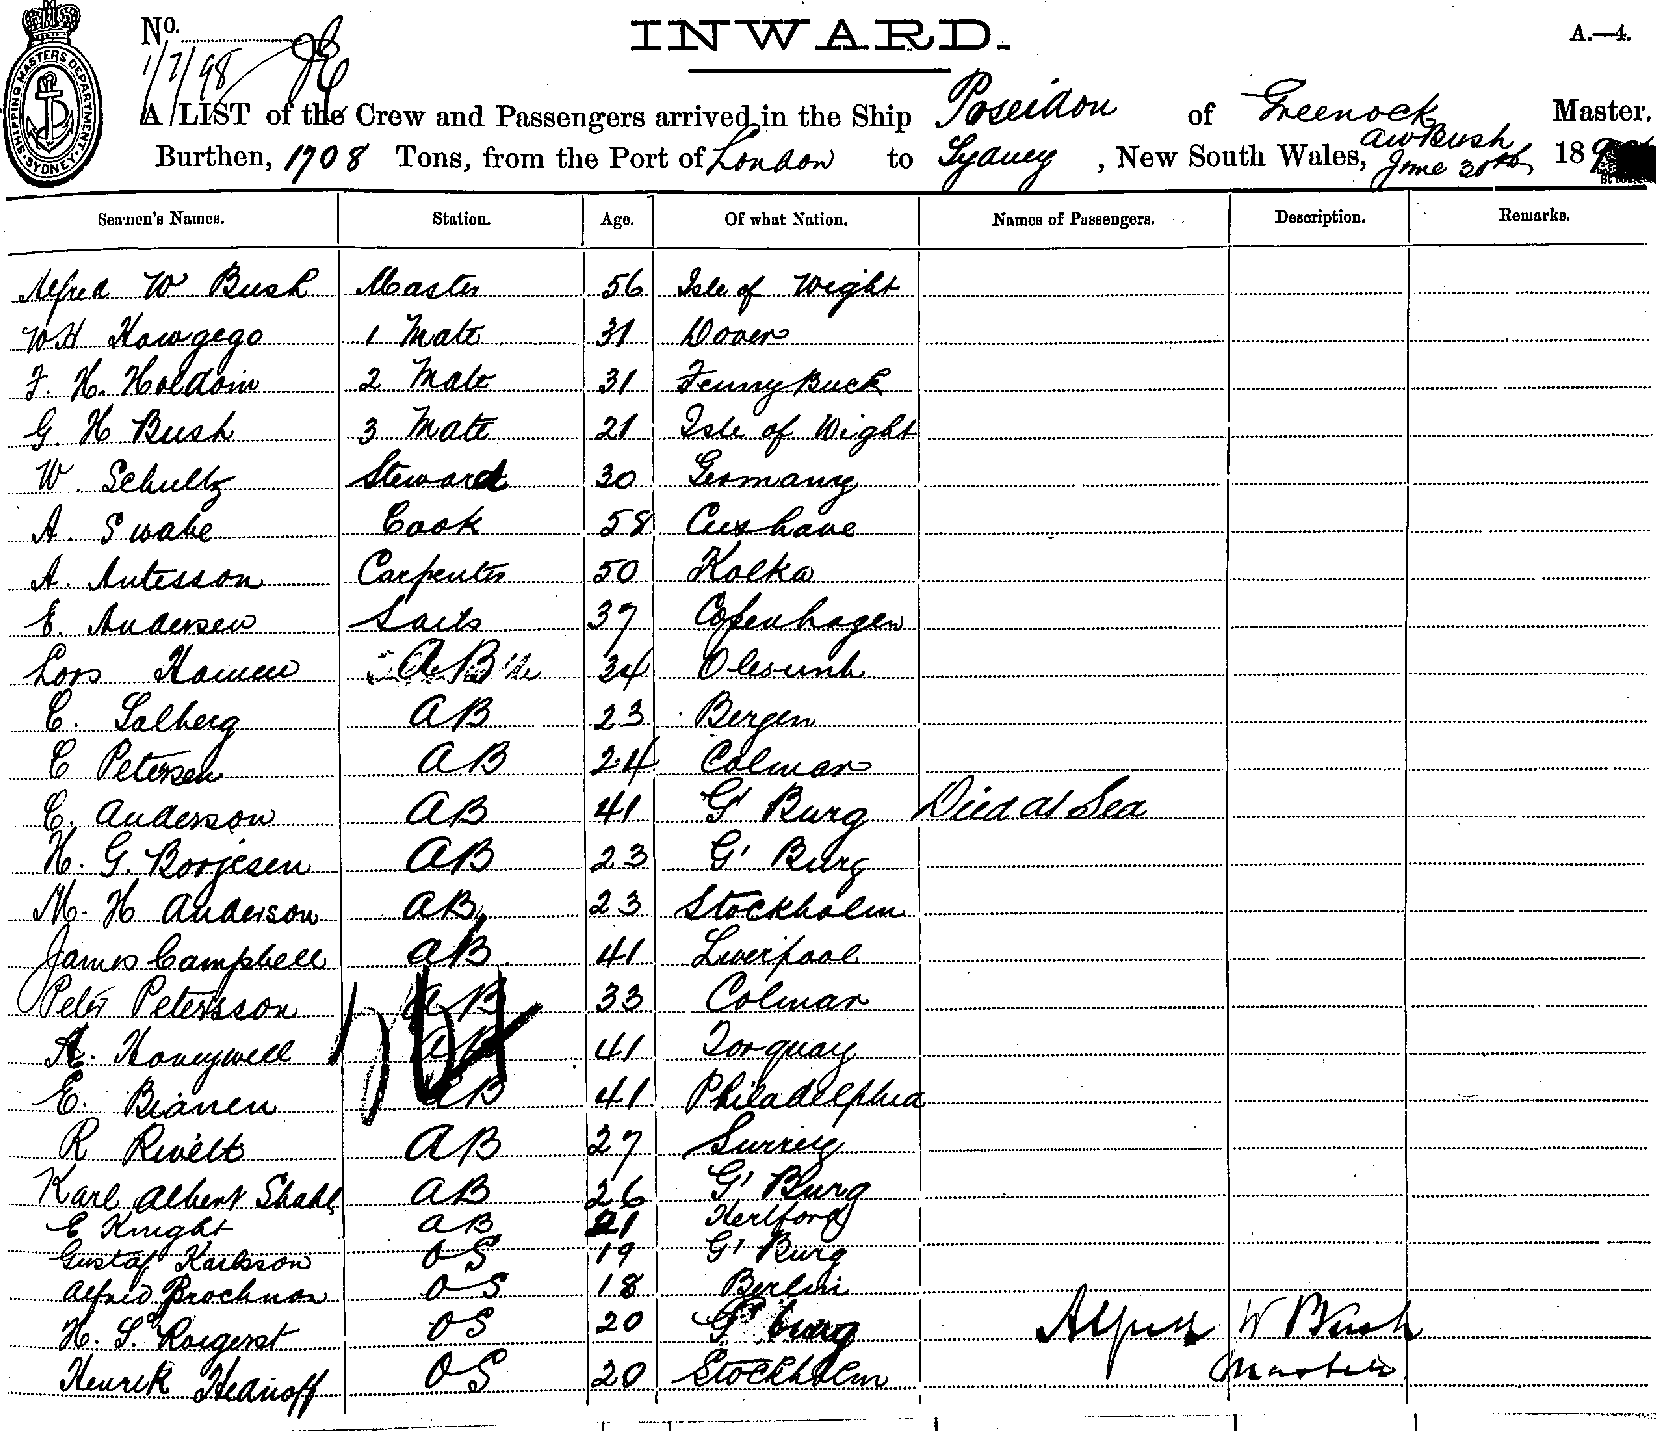 No.
1/7/98
INWARD.
A.—4.
SHIPPING MASTERS DEPARTMENT SYDNEY
A LIST of the Crew and Passengers arrived in the Ship Poseidon of Greenock Master.
A W Bush
Burthen, 1708 Tons, from the Port of London to Sydney, New South Wales, June 30th, 189
Seamen's Names. Station. Age. Of what Nation. Names of Passengers. Description. Remarks.
Alfred W Bush Master 56 Isle of Wight
W H Kowgego 1 Mate 31 Dover
F. H. Holdom 2 Mate 31 Fenny Buck
G. H Bush 3 Mate 21 Isle of Wight
W. Schultz Steward 30 Germany
A. Swabe Cook 58 Cuxhave
A. Antesson Carpenter 50 Kolka
E. Andersen Sails 37 Copenhagen
Lors AB 34
C. Solberg AB 23 Bergen
C Petersen AB 24 Colmar
C. Anderson AB 41 G' Burg Died at Sea
H. G. Borjesen AB 23 G' Burg
M. H Anderson AB 23 Stockholm
James Campbell AB 41 Liverpool
Peter Petersson AB 33 Colmar
A. Honeywell AB 41 Torquay
E. AB 41 Philadelphia
R AB 27 Surrey
Karl Albert Stahl AB 26 G' Burg
E Knight AB 21 Hertford
Gustaf Karlsson OS 19 G' Burg
Alfred Brochnon OS 18 Berlin
H. S. OS 20 G' burg
Henrik OS 20 Stockholm
Alfred W Bush
Master